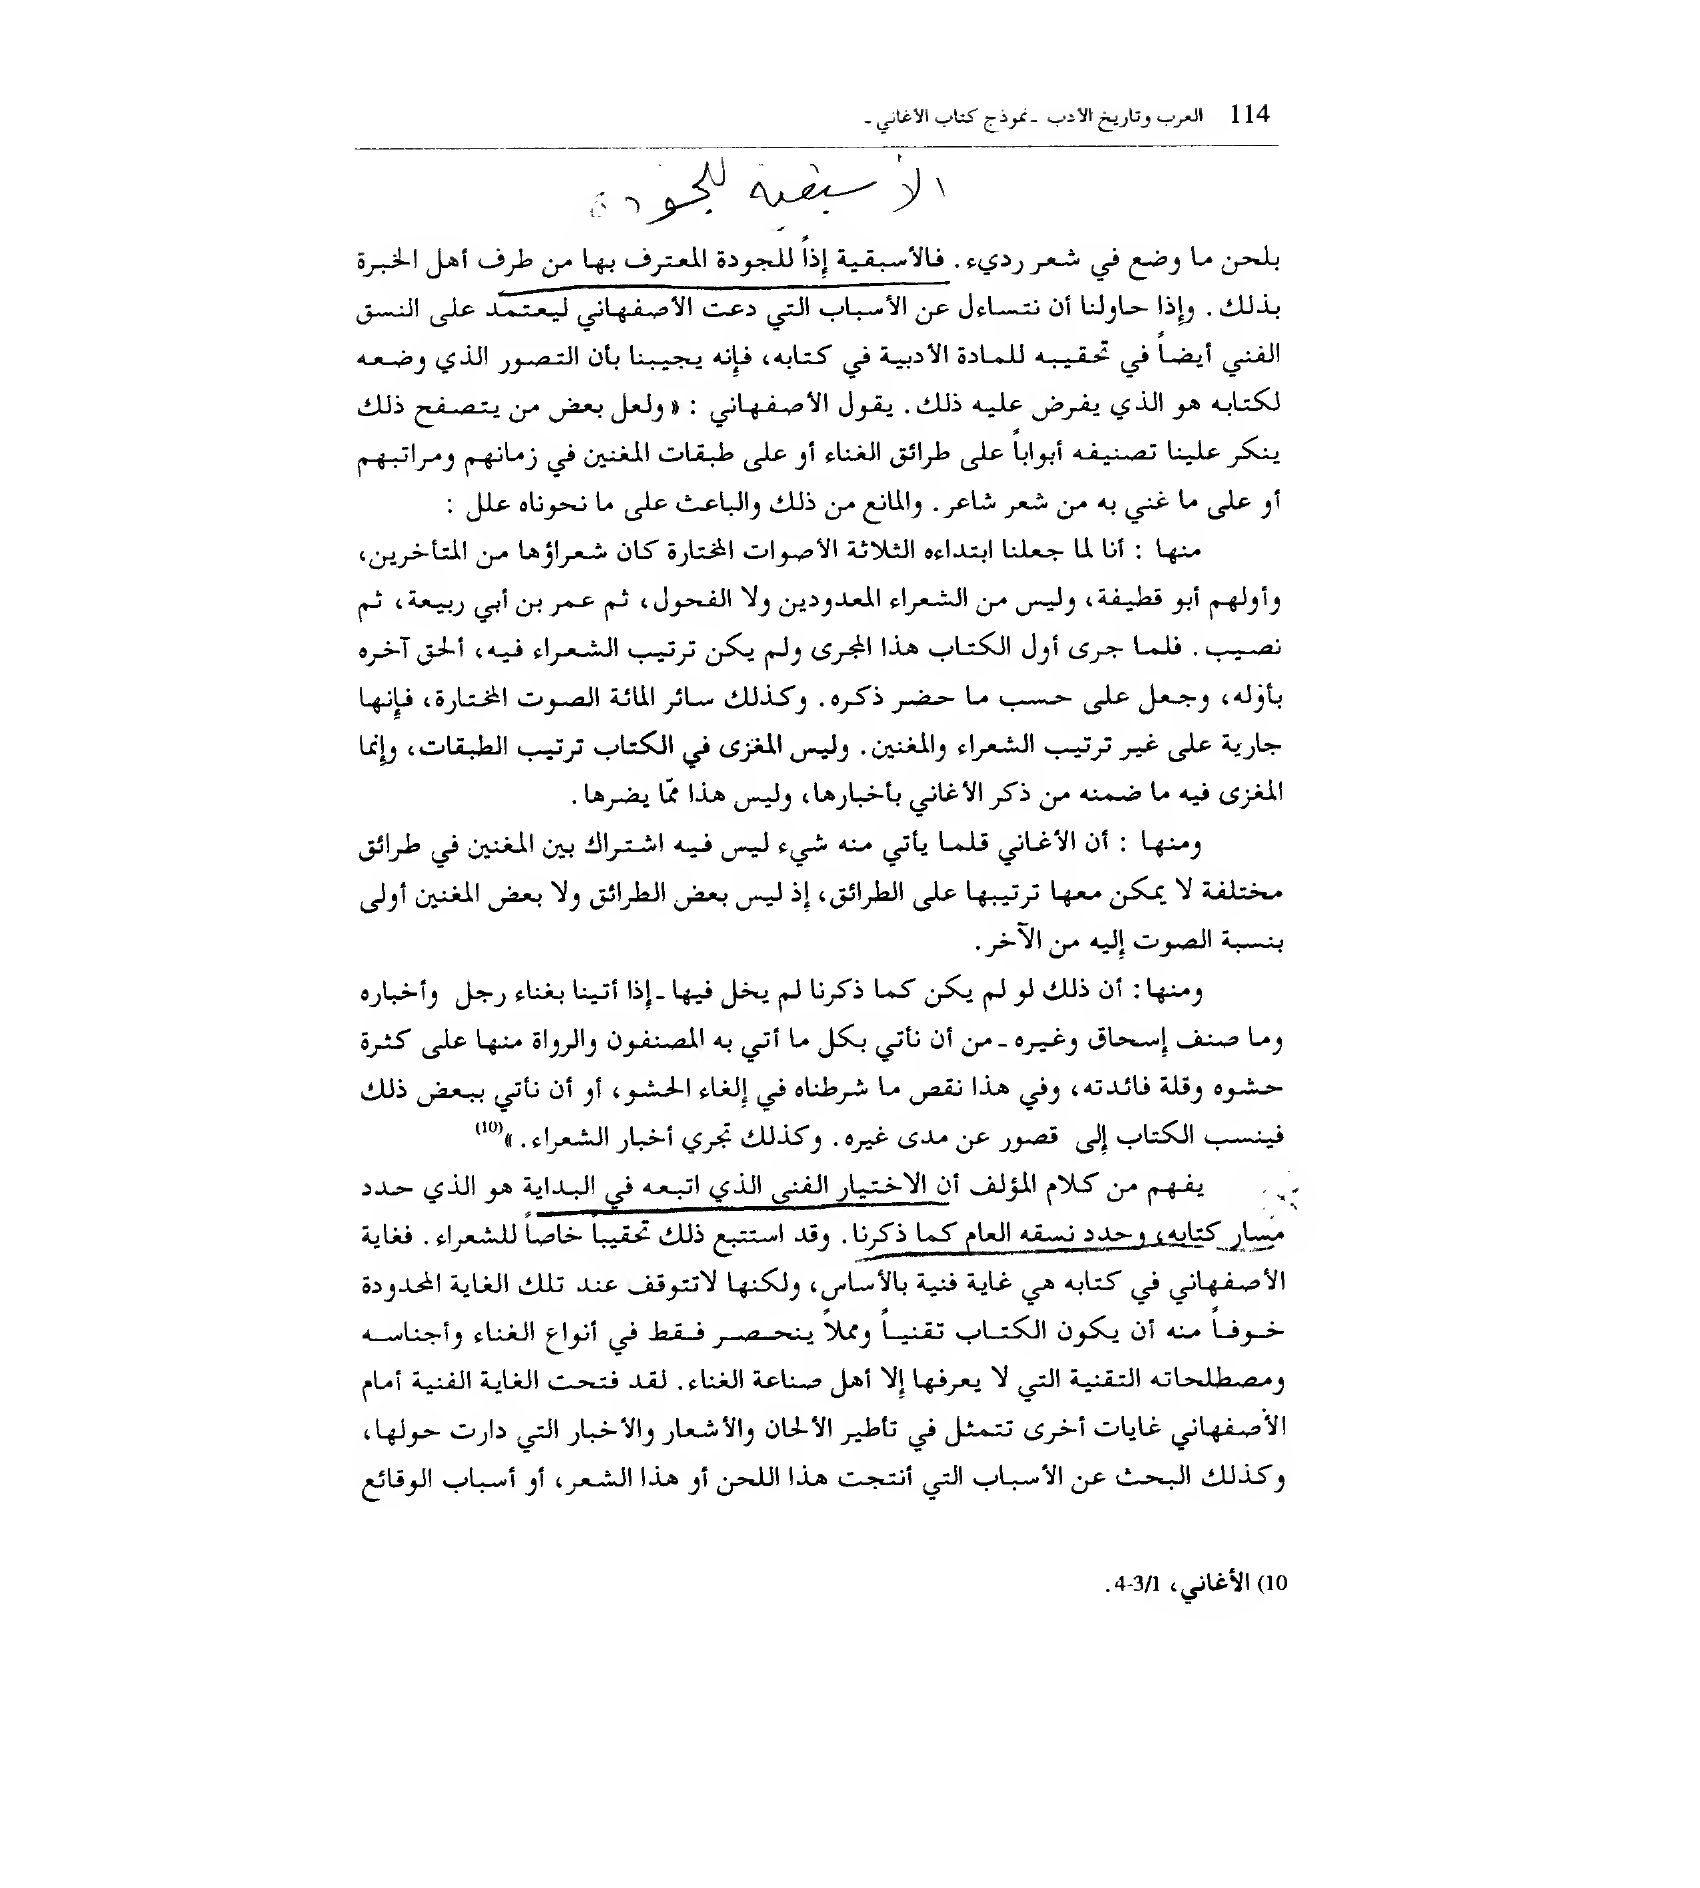 114 العرب وتاريخ الأدب -نموذج كتاب الأغاني-
الأسبقية للجودة
بلحن ما وضع في شعر رديء. فالأسبقية إذاً للجودة المعترف بها من طرف أهل الخبرة
بذلك. وإذا حاولنا أن نتساءل عن الأسباب التي دعت الأصفهاني ليعتمد على النسق
الفني أيضاً في تحقيبه للمادة الأدبية في كتابه، فإنه يجيبنا بأن التصور الذي وضعه
لكتابه هو الذي يفرض عليه ذلك. يقول الأصفهاني : «ولعل بعض من يتصفح ذلك
ينكر علينا تصنيفه أبواباً على طرائق الغناء أو على طبقات المغنين في زمانهم ومراتبهم
أو على ما غني به من شعر شاعر. والمانع من ذلك والباعث على ما نحوناه علل :
منها : أنا لما جعلنا ابتداءه الثلاثة الأصوات المختارة كان شعراؤها من المتأخرين،
وأولهم أبو قطيفة، وليس من الشعراء المعدودين ولا الفحول، ثم عمر بن أبي ربيعة، ثم
نصيب. فلما جرى أول الكتاب هذا المجرى ولم يكن ترتيب الشعراء فيه، ألحق آخره
بأوله، وجعل على حسب ما حضر ذكره. وكذلك سائر المائة الصوت المختارة، فإنها
جارية على غير ترتيب الشعراء والمغنين. وليس المغزى في الكتاب ترتيب الطبقات، وإنما
المغزى فيه ما ضمنه من ذكر الأغاني بأخبارها، وليس هذا ممّا يضرها.
ومنها : أن الأغاني قلما يأتي منه شيء ليس فيه اشتراك بين المغنين في طرائق
مختلفة لا يمكن معها ترتيبها على الطرائق، إذ ليس بعض الطرائق ولا بعض المغنين أولى
بنسبة الصوت إليه من الآخر.
ومنها: أن ذلك لو لم يكن كما ذكرنا لم يخل فيها -إذا أتينا بغناء رجل وأخباره
وما صنف إسحاق وغيره - من أن نأتي بكل ما أتي به المصنفون والرواة منها على كثرة
حشوه وقلة فائدته، وفي هذا نقص ما شرطناه في إلغاء الحشو، أو أن نأتي ببعض ذلك
فينسب الكتاب إلى قصور عن مدى غيره. وكذلك تجري أخبار الشعراء.»(10)
يفهم من كلام المؤلف أن الاختيار الفني الذي اتبعه في البداية هو الذي حدد
مسار كتابه، وحدد نسقه العام كما ذكرنا. وقد استتبع ذلك تحقيباً خاصاً للشعراء. فغاية
الأصفهاني في كتابه هي غاية فنية بالأساس، ولكنها لاتتوقف عند تلك الغاية المحدودة
خوفاً منه أن يكون الكتاب تقنياً ومملاً ينحصر فقط في أنواع الغناء وأجناسه
ومصطلحاته التقنية التي لا يعرفها إلا أهل صناعة الغناء. لقد فتحت الغاية الفنية أمام
الأصفهاني غايات أخرى تتمثل في تأطير الألحان والأشعار والأخبار التي دارت حولها،
وكذلك البحث عن الأسباب التي أنتجت هذا اللحن أو هذا الشعر، أو أسباب الوقائع
10) الأغاني، 3/1-4.